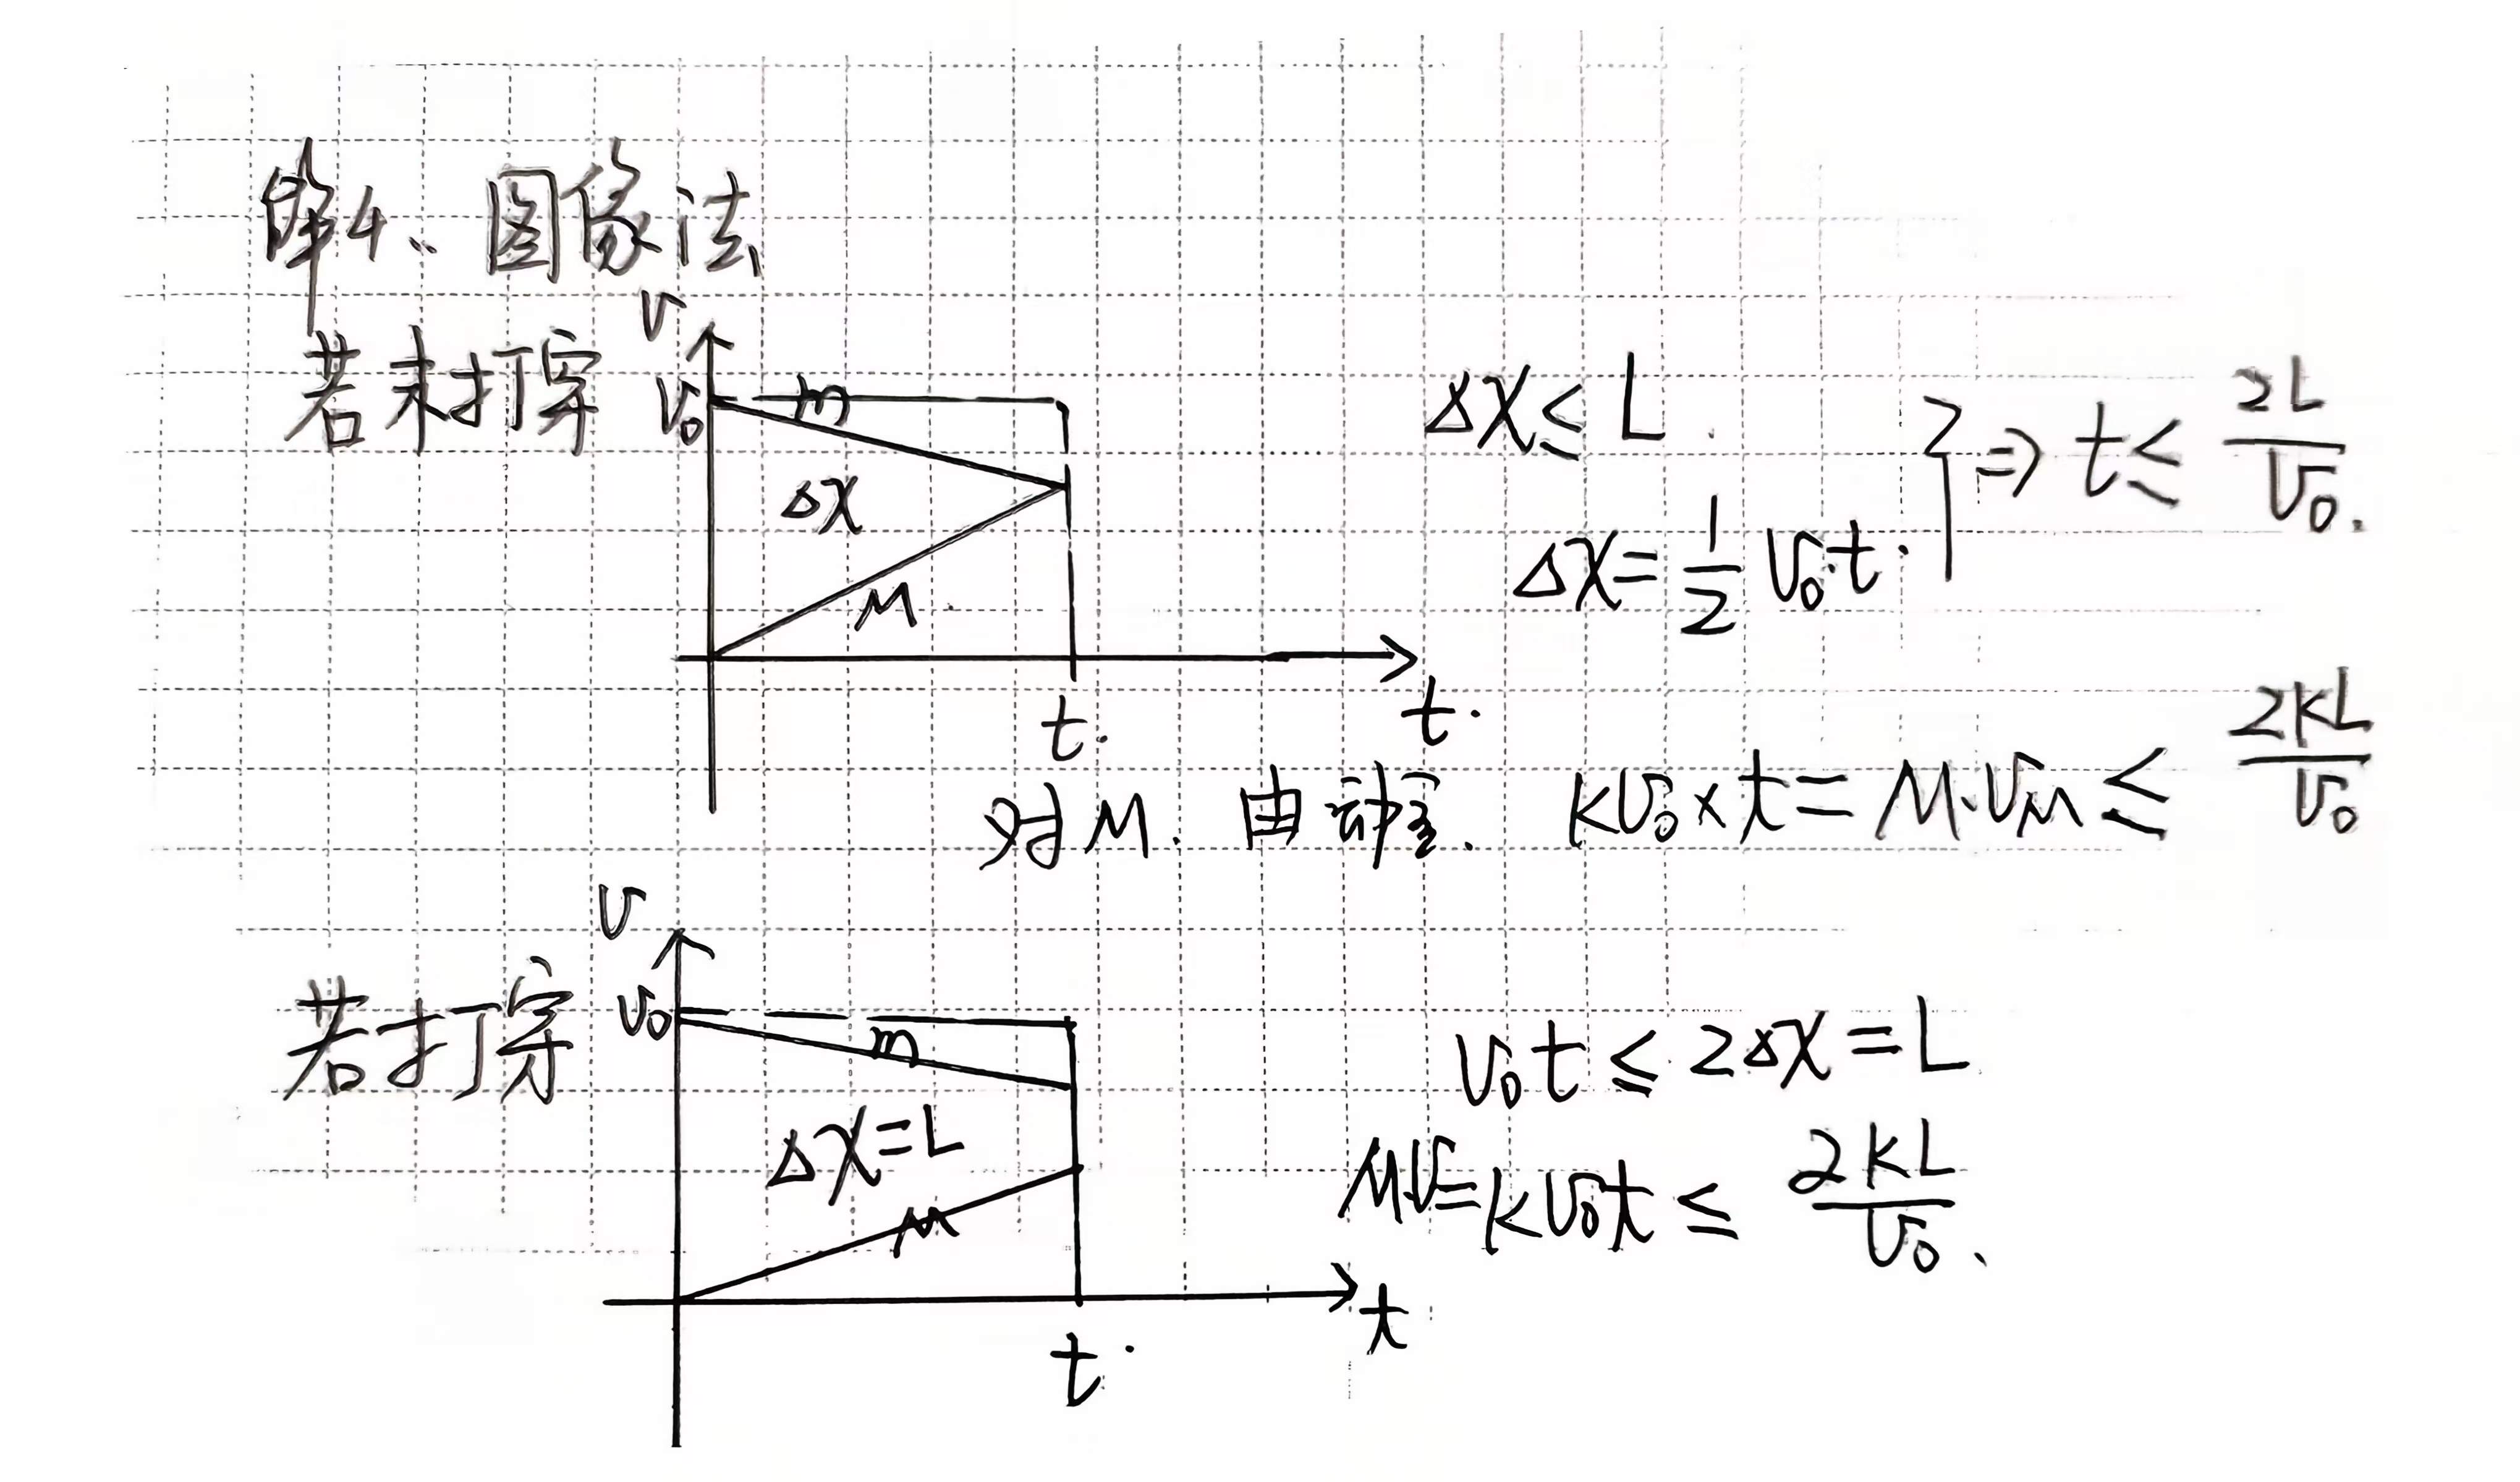 解4、图象法
若未打穿
v
v₀
m
Δx
M.
t.
t.
Δx≤L.
Δx=½v₀·t.
⇒t≤2L/v₀.
对M.由动量. kv₀×t=M·v_M≤2kL/v₀
若打穿
v
v₀
m
Δx=L
M
t.
t
v₀t≤2Δx=L
Mv=kv₀t≤2kL/v₀.